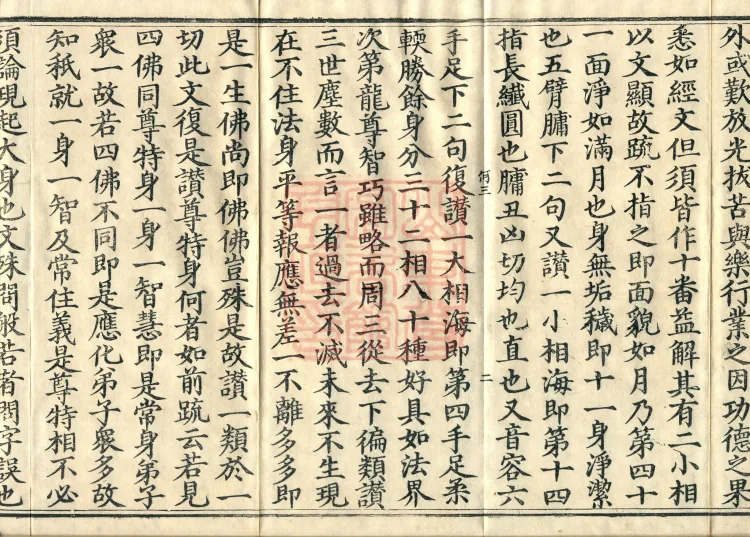 外或歎放光拔苦與樂行業之因功德之果
悉如經文但須皆作十番益解其有二小相
以文顯故䟽不指之即面貌如月乃第四十
一面淨如滿月也身無垢穢即十一身淨潔
也五臂𦟛下二句又讚一小相海即第十四
指長纖圓也𦟛丑凶切均也直也又音容六
二
手足下二句復讚一大相海即第四手足柔
輭勝餘身分三十二相八十種好具如法界
次第龍尊智巧雖略而周三從去下徧類讚
三世塵數而言一者過去不滅未來不生現
在不住法身平等報應無差一不離多多即
是一生佛尚即佛佛豈殊是故讚一類於一
切此文復是讚尊特身何者如前䟽云若見
四佛同尊特身一身一智慧即是常身弟子
衆一故若四佛不同即是應化弟子衆多故
知秖就一身一智及常住義是尊特相不必
須論現起大身也文殊問般若者問字誤也